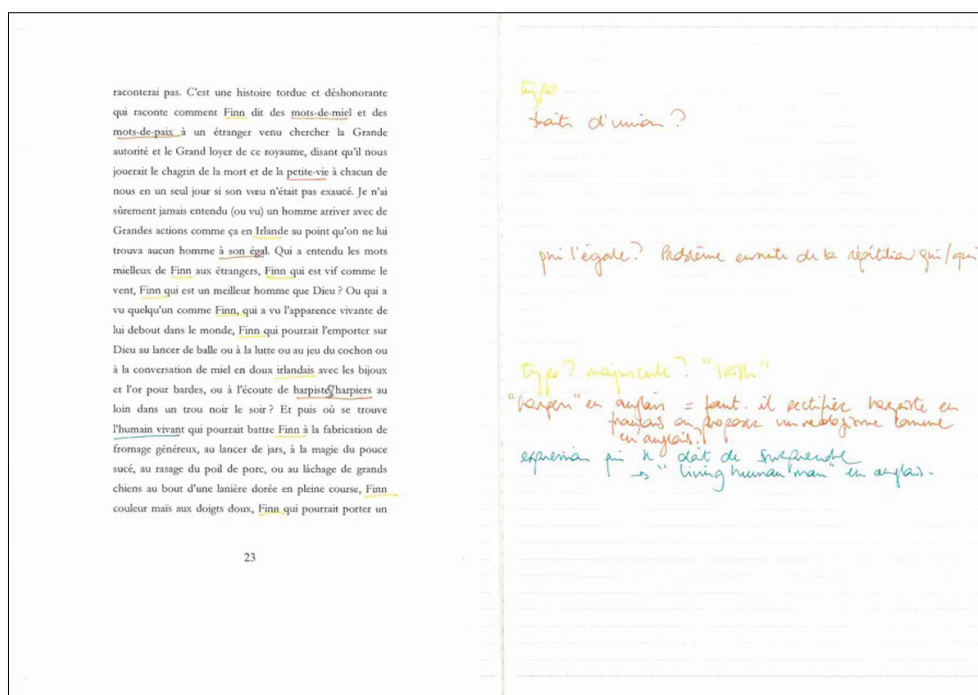 raconterai pas. C'est une histoire tordue et déshonorante
qui raconte comment Finn dit des mots-de-miel et des
mots-de-paix à un étranger venu chercher la Grande
autorité et le Grand loyer de ce royaume, disant qu'il nous
jouerait le chagrin de la mort et de la petite-vie à chacun de
nous en un seul jour si son vœu n'était pas exaucé. Je n'ai
sûrement jamais entendu (ou vu) un homme arriver avec de
Grandes actions comme ça en Irlande au point qu'on ne lui
trouva aucun homme à son égal. Qui a entendu les mots
mielleux de Finn aux étrangers, Finn qui est vif comme le
vent, Finn qui est un meilleur homme que Dieu ? Ou qui a
vu quelqu'un comme Finn, qui a vu l'apparence vivante de
lui debout dans le monde, Finn qui pourrait l'emporter sur
Dieu au lancer de balle ou à la lutte ou au jeu du cochon ou
à la conversation de miel en doux irlandais avec les bijoux
et l'or pour bardes, ou à l'écoute de harpiste/harpiers au
loin dans un trou noir le soir ? Et puis où se trouve
l'humain vivant qui pourrait battre Finn à la fabrication de
fromage généreux, au lancer de jars, à la magie du pouce
sucé, au rasage du poil de porc, ou au lâchage de grands
chiens au bout d'une lanière dorée en pleine course, Finn
couleur maïs aux doigts doux, Finn qui pourrait porter un
23
type
traits d'union ?
qui l'égale ? Problème ensuite de la répétition qui/qui
type ? majuscule ? "Irish"
"harpers" en anglais = faut-il rectifier harpiste en
français ou propose un néologisme comme
en anglais ?
expression qui doit surprendre
→ "living human man" en anglais.